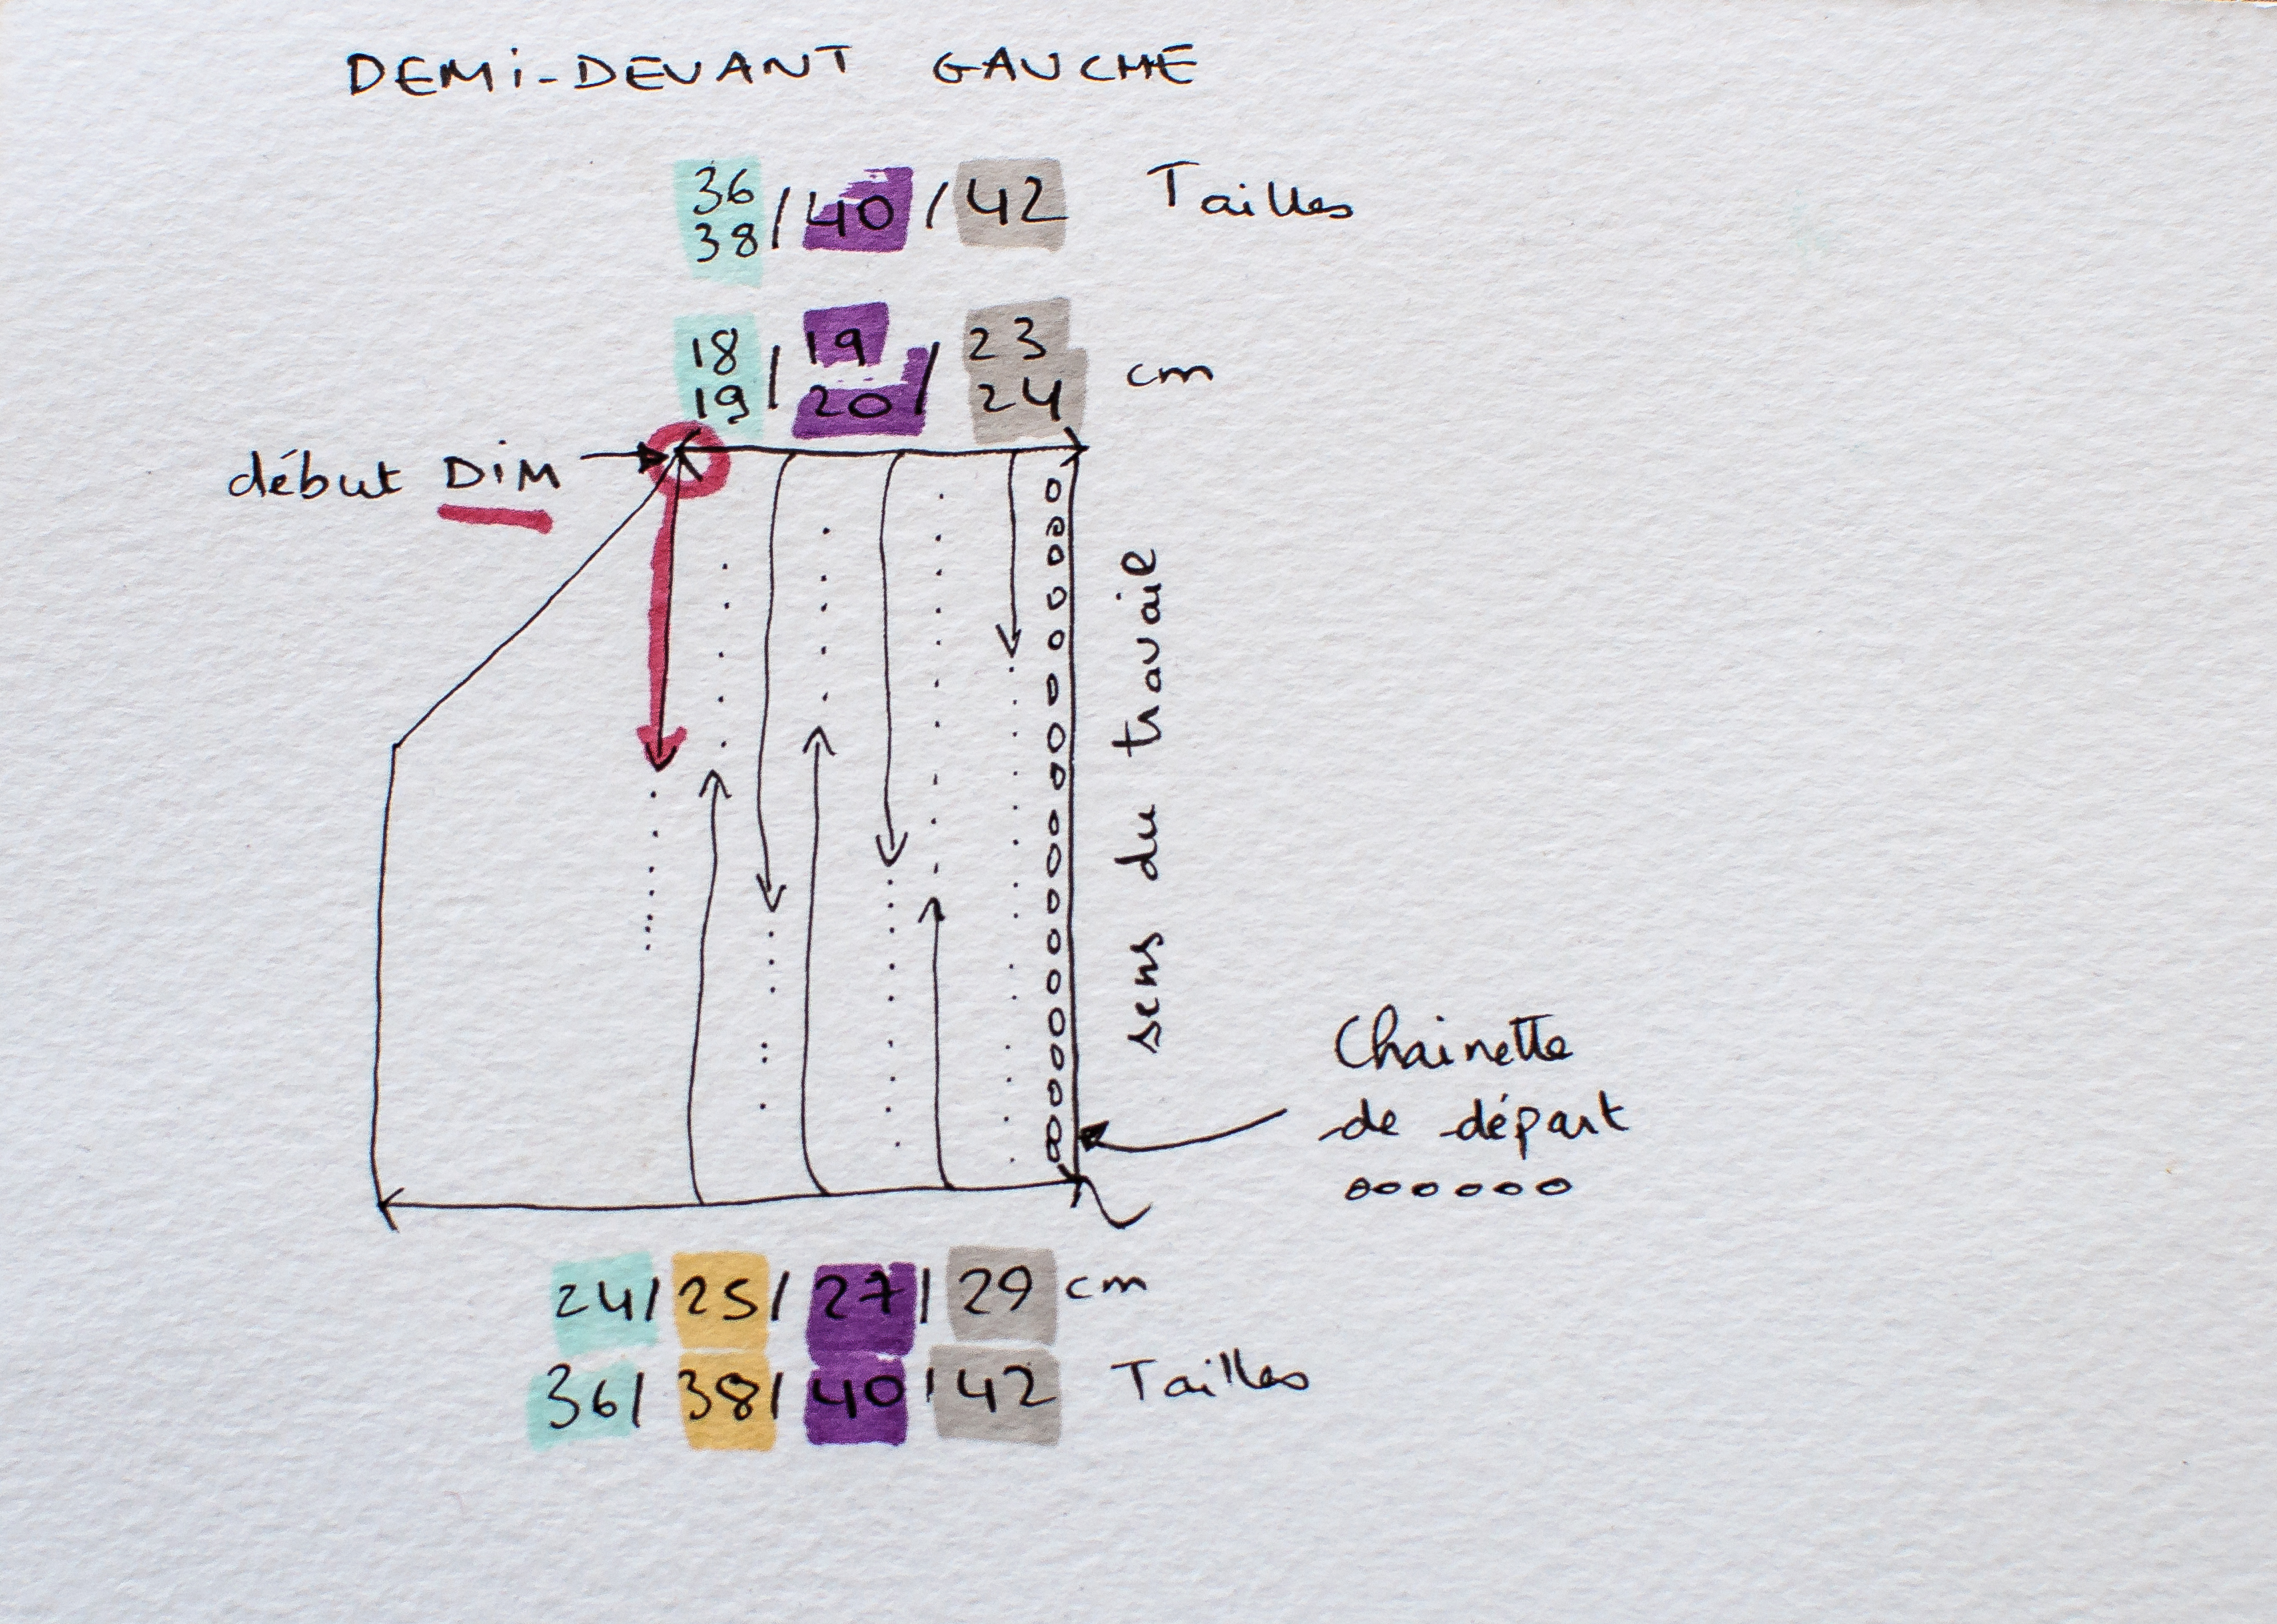 DEMI-DEVANT GAUCHE
36
38 / 40 / 42 Tailles
18 / 19 / 23 cm
19 20 24
début DIM
sens du travail
Chainette
de départ
24 / 25 / 27 / 29 cm
36 / 38 / 40 / 42 Tailles